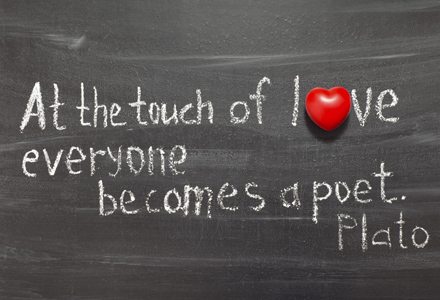 At the touch of love
everyone
becomes a poet.
Plato